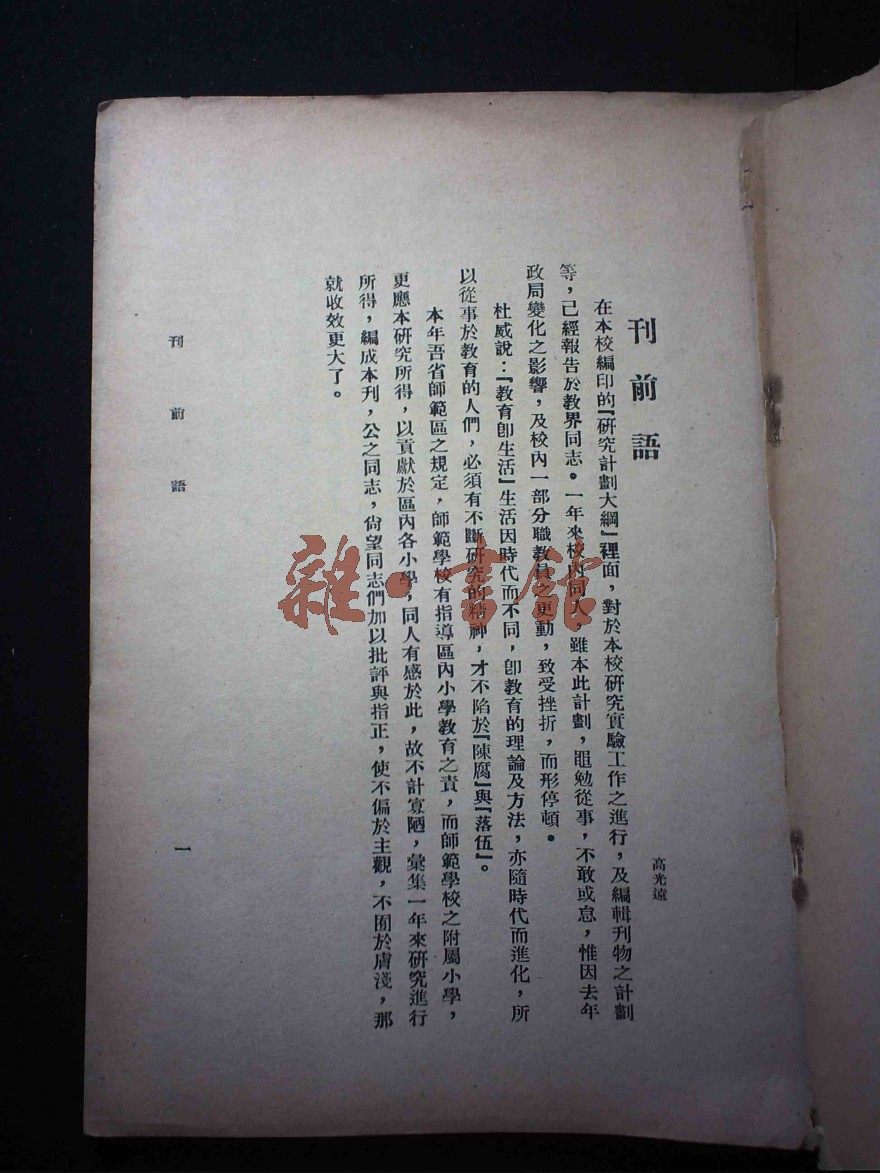 刊前語
高光遠
在本校編印的『研究計劃大綱』裡面，對於本校研究實驗工作之進行，及編輯刊物之計劃
等，已經報告於教界同志。一年來校內同人，雖本此計劃，黽勉從事，不敢或怠，惟因去年
政局變化之影響，及校內一部分職教員之更動，致受挫折，而形停頓。
杜威說：『教育卽生活』生活因時代而不同，卽教育的理論及方法，亦隨時代而進化，所
以從事於教育的人們，必須有不斷研究的精神，才不陷於『陳腐』與『落伍』。
本年吾省師範區之規定，師範學校有指導區內小學教育之責，而師範學校之附屬小學，
更應本研究所得，以貢獻於區內各小學，同人有感於此，故不計寡陋，彙集一年來研究進行
所得，編成本刊，公之同志，尙望同志們加以批評與指正，使不偏於主觀，不囿於膚淺，那
就收效更大了。
刊前語
一
雜·書館